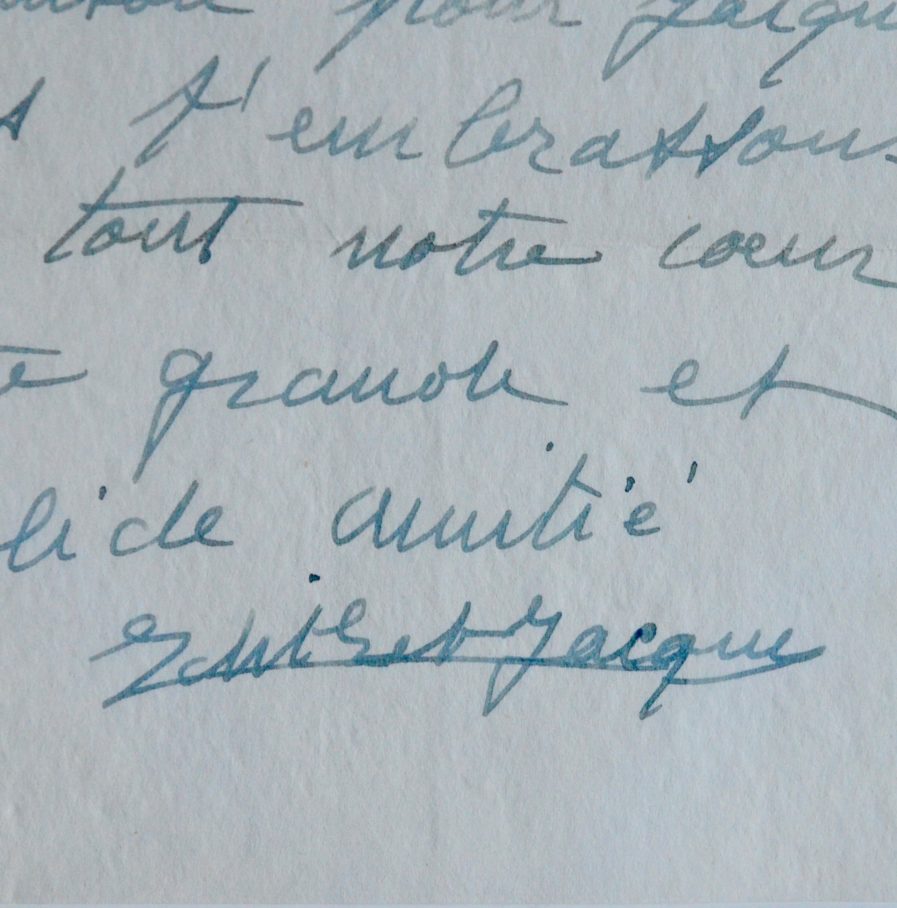 pour Jacqu
s t'embrassons
tout notre cœur
te grande et
lide amitié
Edith et Jacques